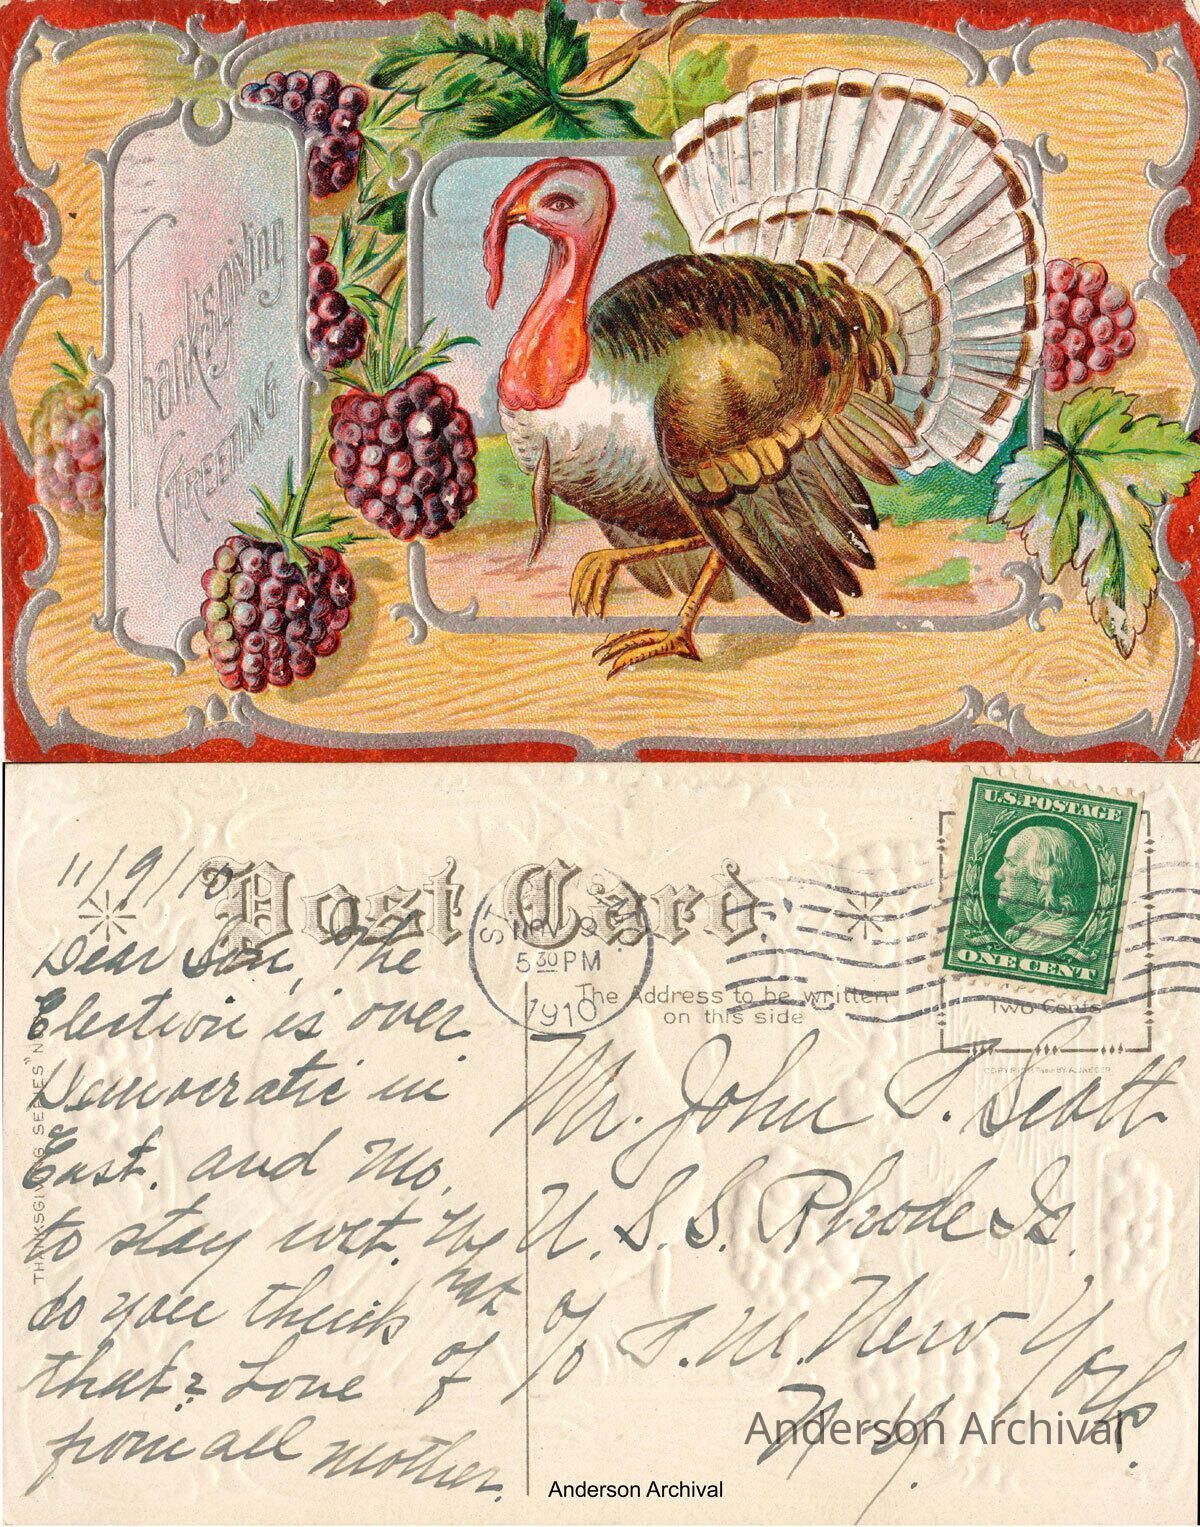 Thanksgiving
GREETING
11/9/10
Post Card
ST
NOV 9
5 30 PM
1910
U.S. POSTAGE
ONE CENT
Two Cents
The Address to be written
on this side
COPYRIGHT BY A. JAEGER
THANKSGIVING SERIES" NO
Dear Son, The
Election is over
Democratic in
East. and Mo.
to stay wet. What
do you think of
that? Love
from all Mother.
Mr. John T. Scott
U.S.S. Rhode Is.
c/o P.M. New York
N.Y.
Anderson Archival
Anderson Archival